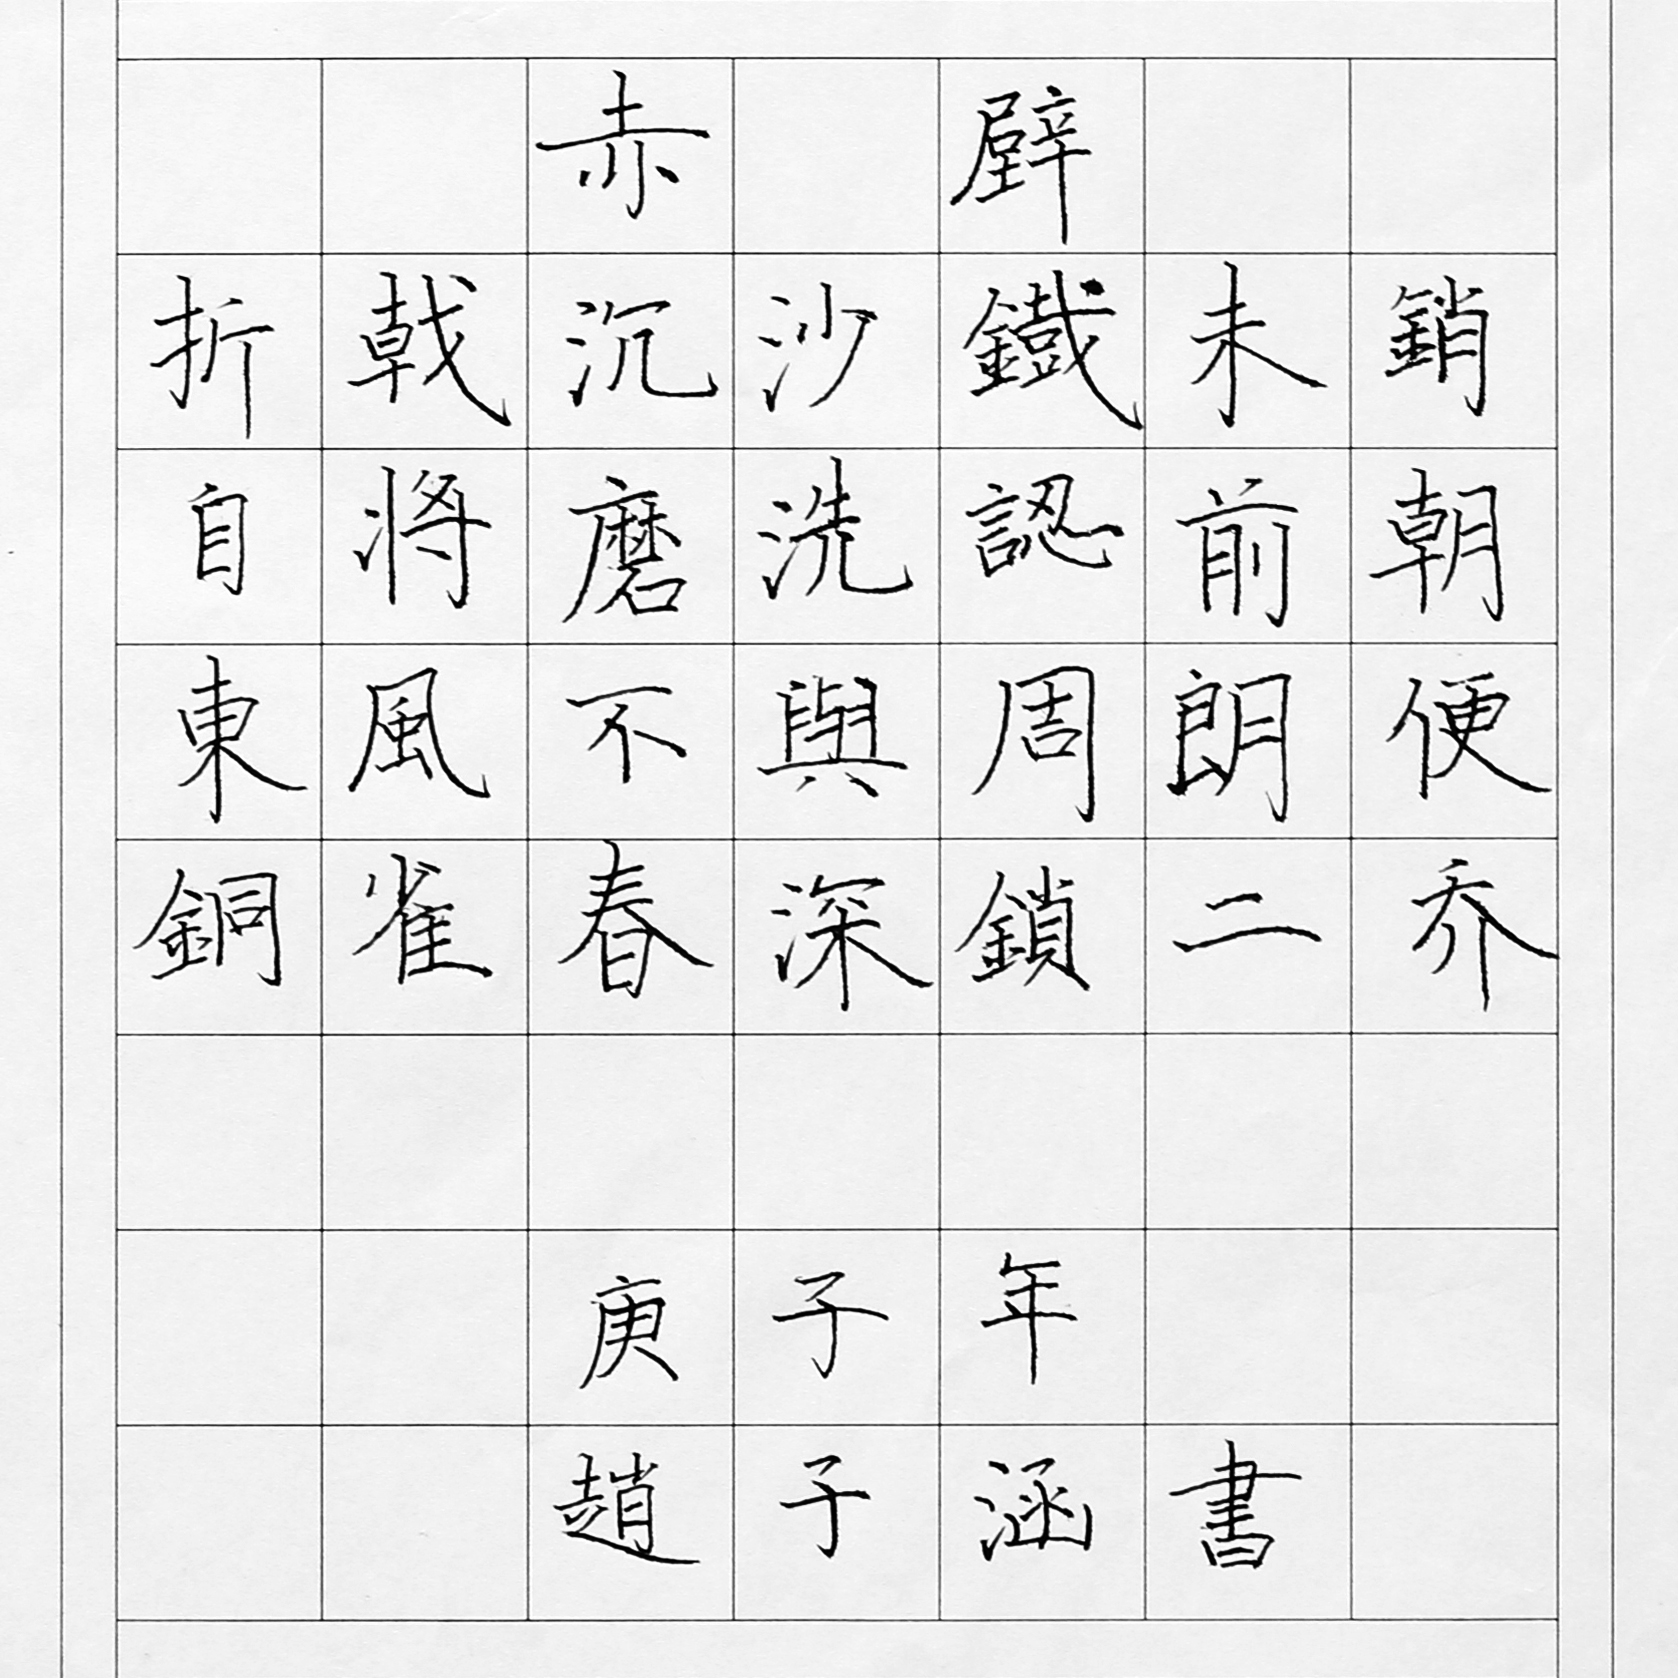 赤壁
折戟沉沙鐵未銷
自將磨洗認前朝
東風不與周朗便
銅雀春深鎖二乔
庚子年
趙子涵書